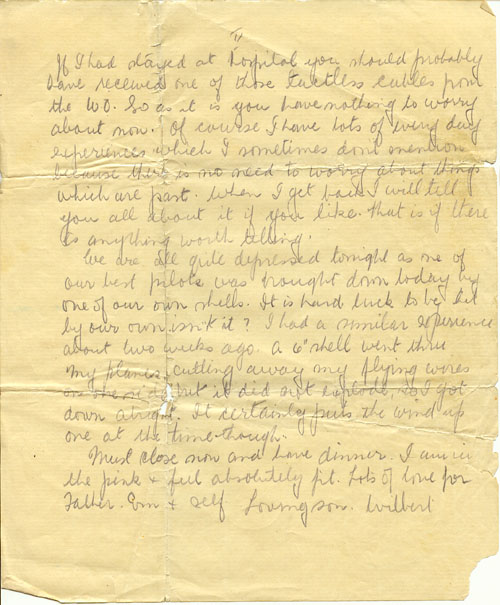 If I had stayed at hospital you should probably
have received one of those tactless cables from
the WO. So as it is you have nothing to worry
about now. Of course I have lots of every day
experiences which I sometimes dont mention
because there is no need to worry about things
which are past. When I get back I will tell
you all about it if you like. that is if there
is anything worth telling.
We are all quite depressed tonight as one of
our best pilots was brought down today by
one of our own shells. It is hard luck to be hit
by our own isn't it? I had a similar experience
about two weeks ago. A 6" shell went thru
my planes, cutting away my flying wires
on one side but it did not explode, so I got
down alright. It certainly puts the wind up
one at the time though.
Must close now and have dinner. I am in
the pink & feel absolutely fit. Lots of love for
Father. Em & self Loving son. Wilbert